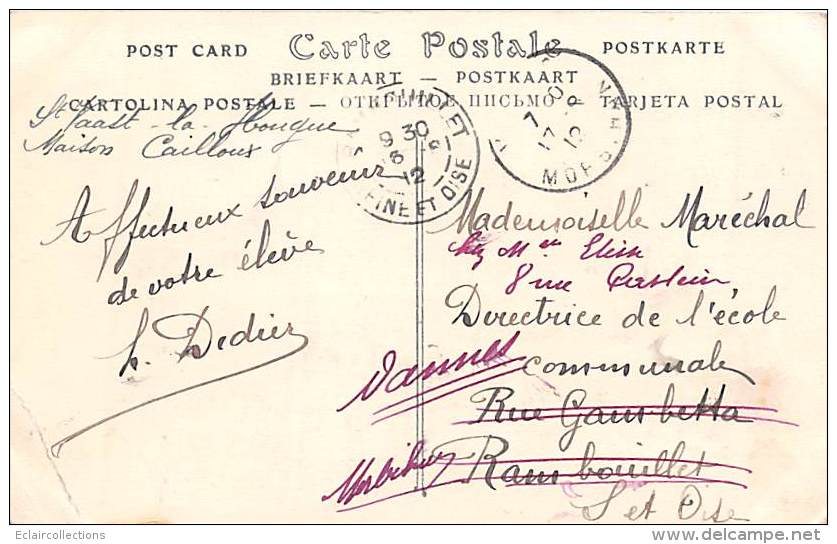 POST CARD Carte Postale POSTKARTE
BRIEFKAART — POSTKAART
CARTOLINA POSTALE — ОТКРЫТОЕ ПИСЬМО — TARJETA POSTAL
St Vaast-la-Hougue
Maison Cailloux
9 30
12
SEINE ET OISE
7
17 - 8
12
MORB
Affectueux souvenir
de votre élève
L. Dedier
Mademoiselle Maréchal
chez Mr
8 rue
Directrice de l'école
communale
Vannes
Rue Gambetta
Morbihan
Rambouillet
S et Oise
Eclaircollections
delcampe.net